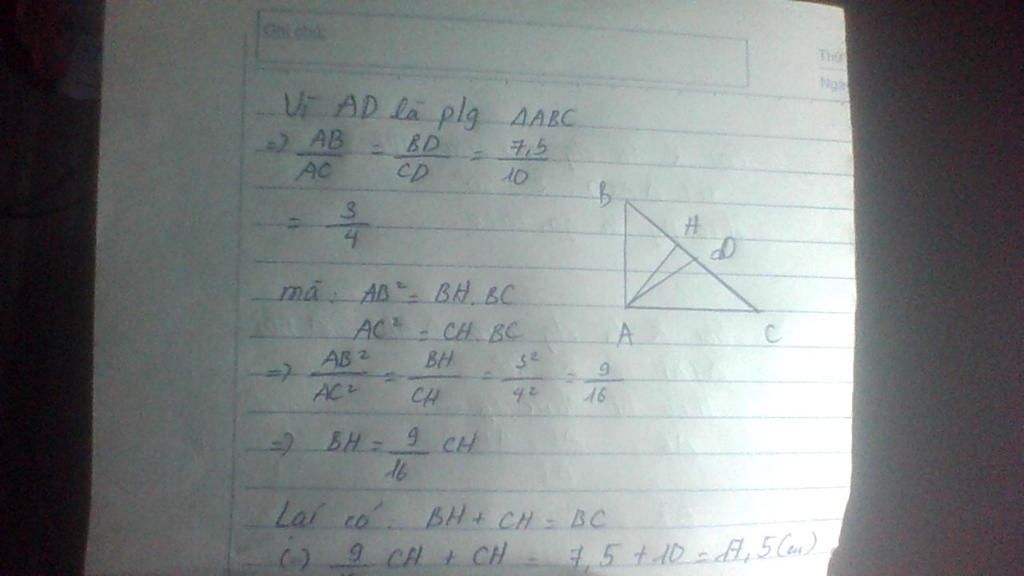 Ghi chú:
Thứ
Ngà
Vì AD là p/g ΔABC
=> AB/AC = BD/CD = 7,5/10
= 3/4
mà: AB² = BH.BC
AC² = CH.BC
=> AB²/AC² = BH/CH = 3²/4² = 9/16
=> BH = 9/16 CH
Lại có: BH + CH = BC
(=) 9/16 CH + CH = 7,5 + 10 = 17,5 (cm)
B
H
D
A
C